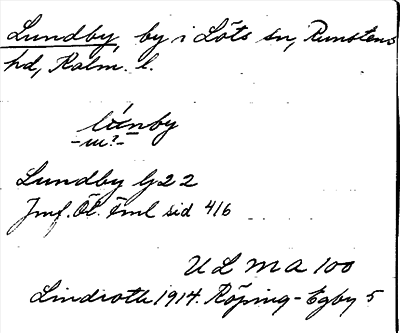 Lundby, by i Löts sn, Runstens
hd, Kalm. l.
lúnby
-ur?-
Lundby G 2 2
Jmf. Öl. fml sid 416
ULMA 100
Lindroth 1914. Köping-Egby 5